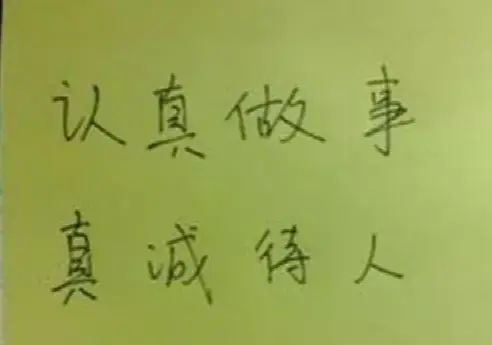 认真做事
真诚待人